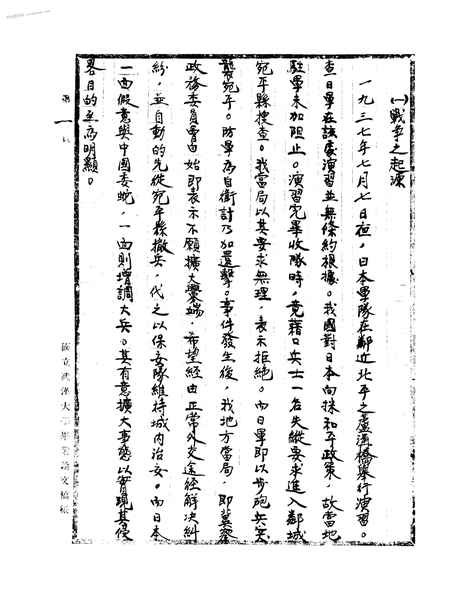 (一)戰爭之起源
一九三七年七月七日夜,日本軍隊在鄰近北平之蘆溝橋舉行演習。
查日軍在該處演習並無條約根據。我國對日本向採和平政策,故當地
駐軍未加阻止。演習完畢收隊時,竟藉口兵士一名失縱要求進入鄰城
宛平縣搜查。我當局以其要求無理,表示拒絕。而日軍即以步砲兵突
襲宛平。防軍為自衛計乃加還擊。事件發生後,我地方當局,即冀察
政務委員會自始即表示不願擴大釁端,希望經由正常外交途經解決糾
紛,並自動的先從宛平縣撤兵,代之以保安隊維持城內治安。而日本
一面假意與中國委蛇,一面則增調大兵。其有意擴大事態以實現其侵
畧目的至為明顯。
第一頁
國立武漢大學畢業論文稿紙